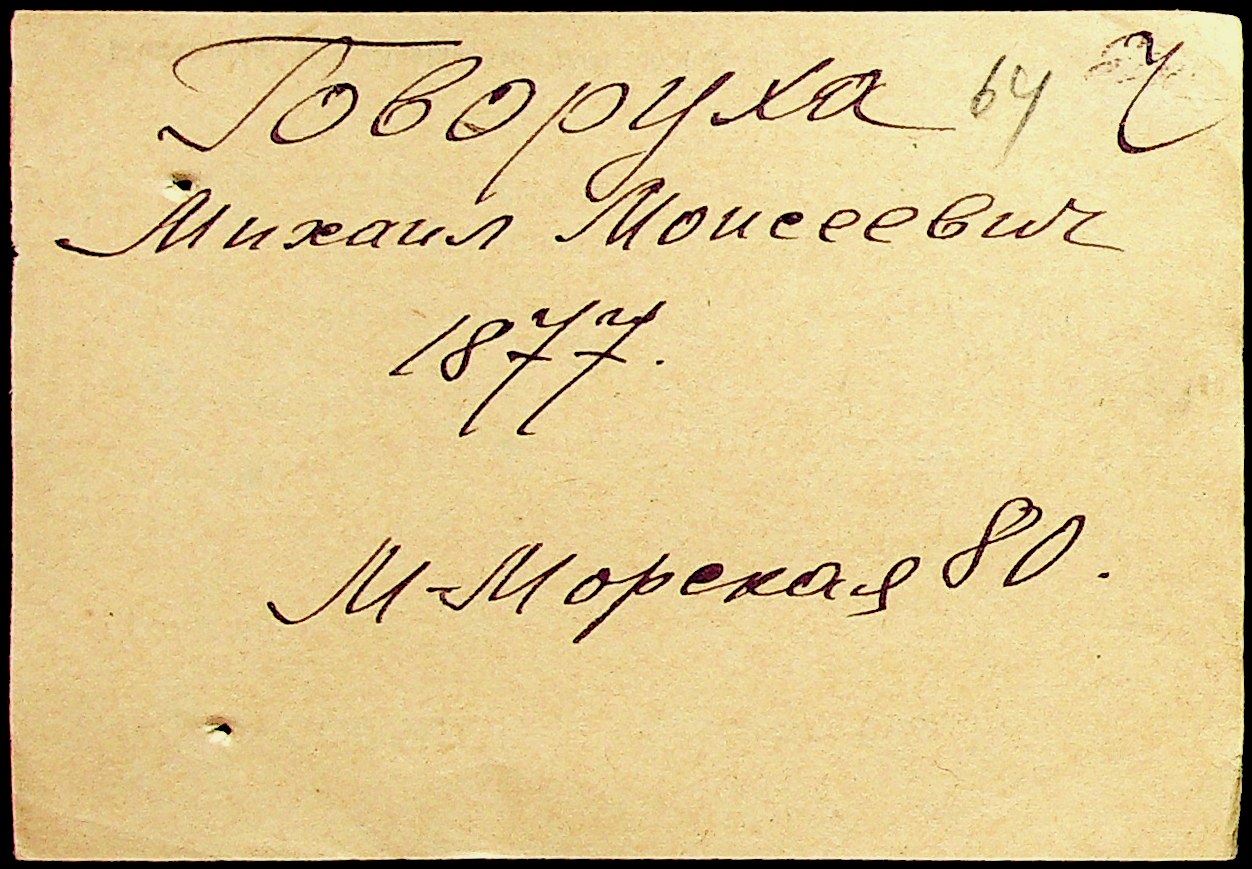 Говоруха 64
Михаил Моисеевич
1877.
М-Морская 80.